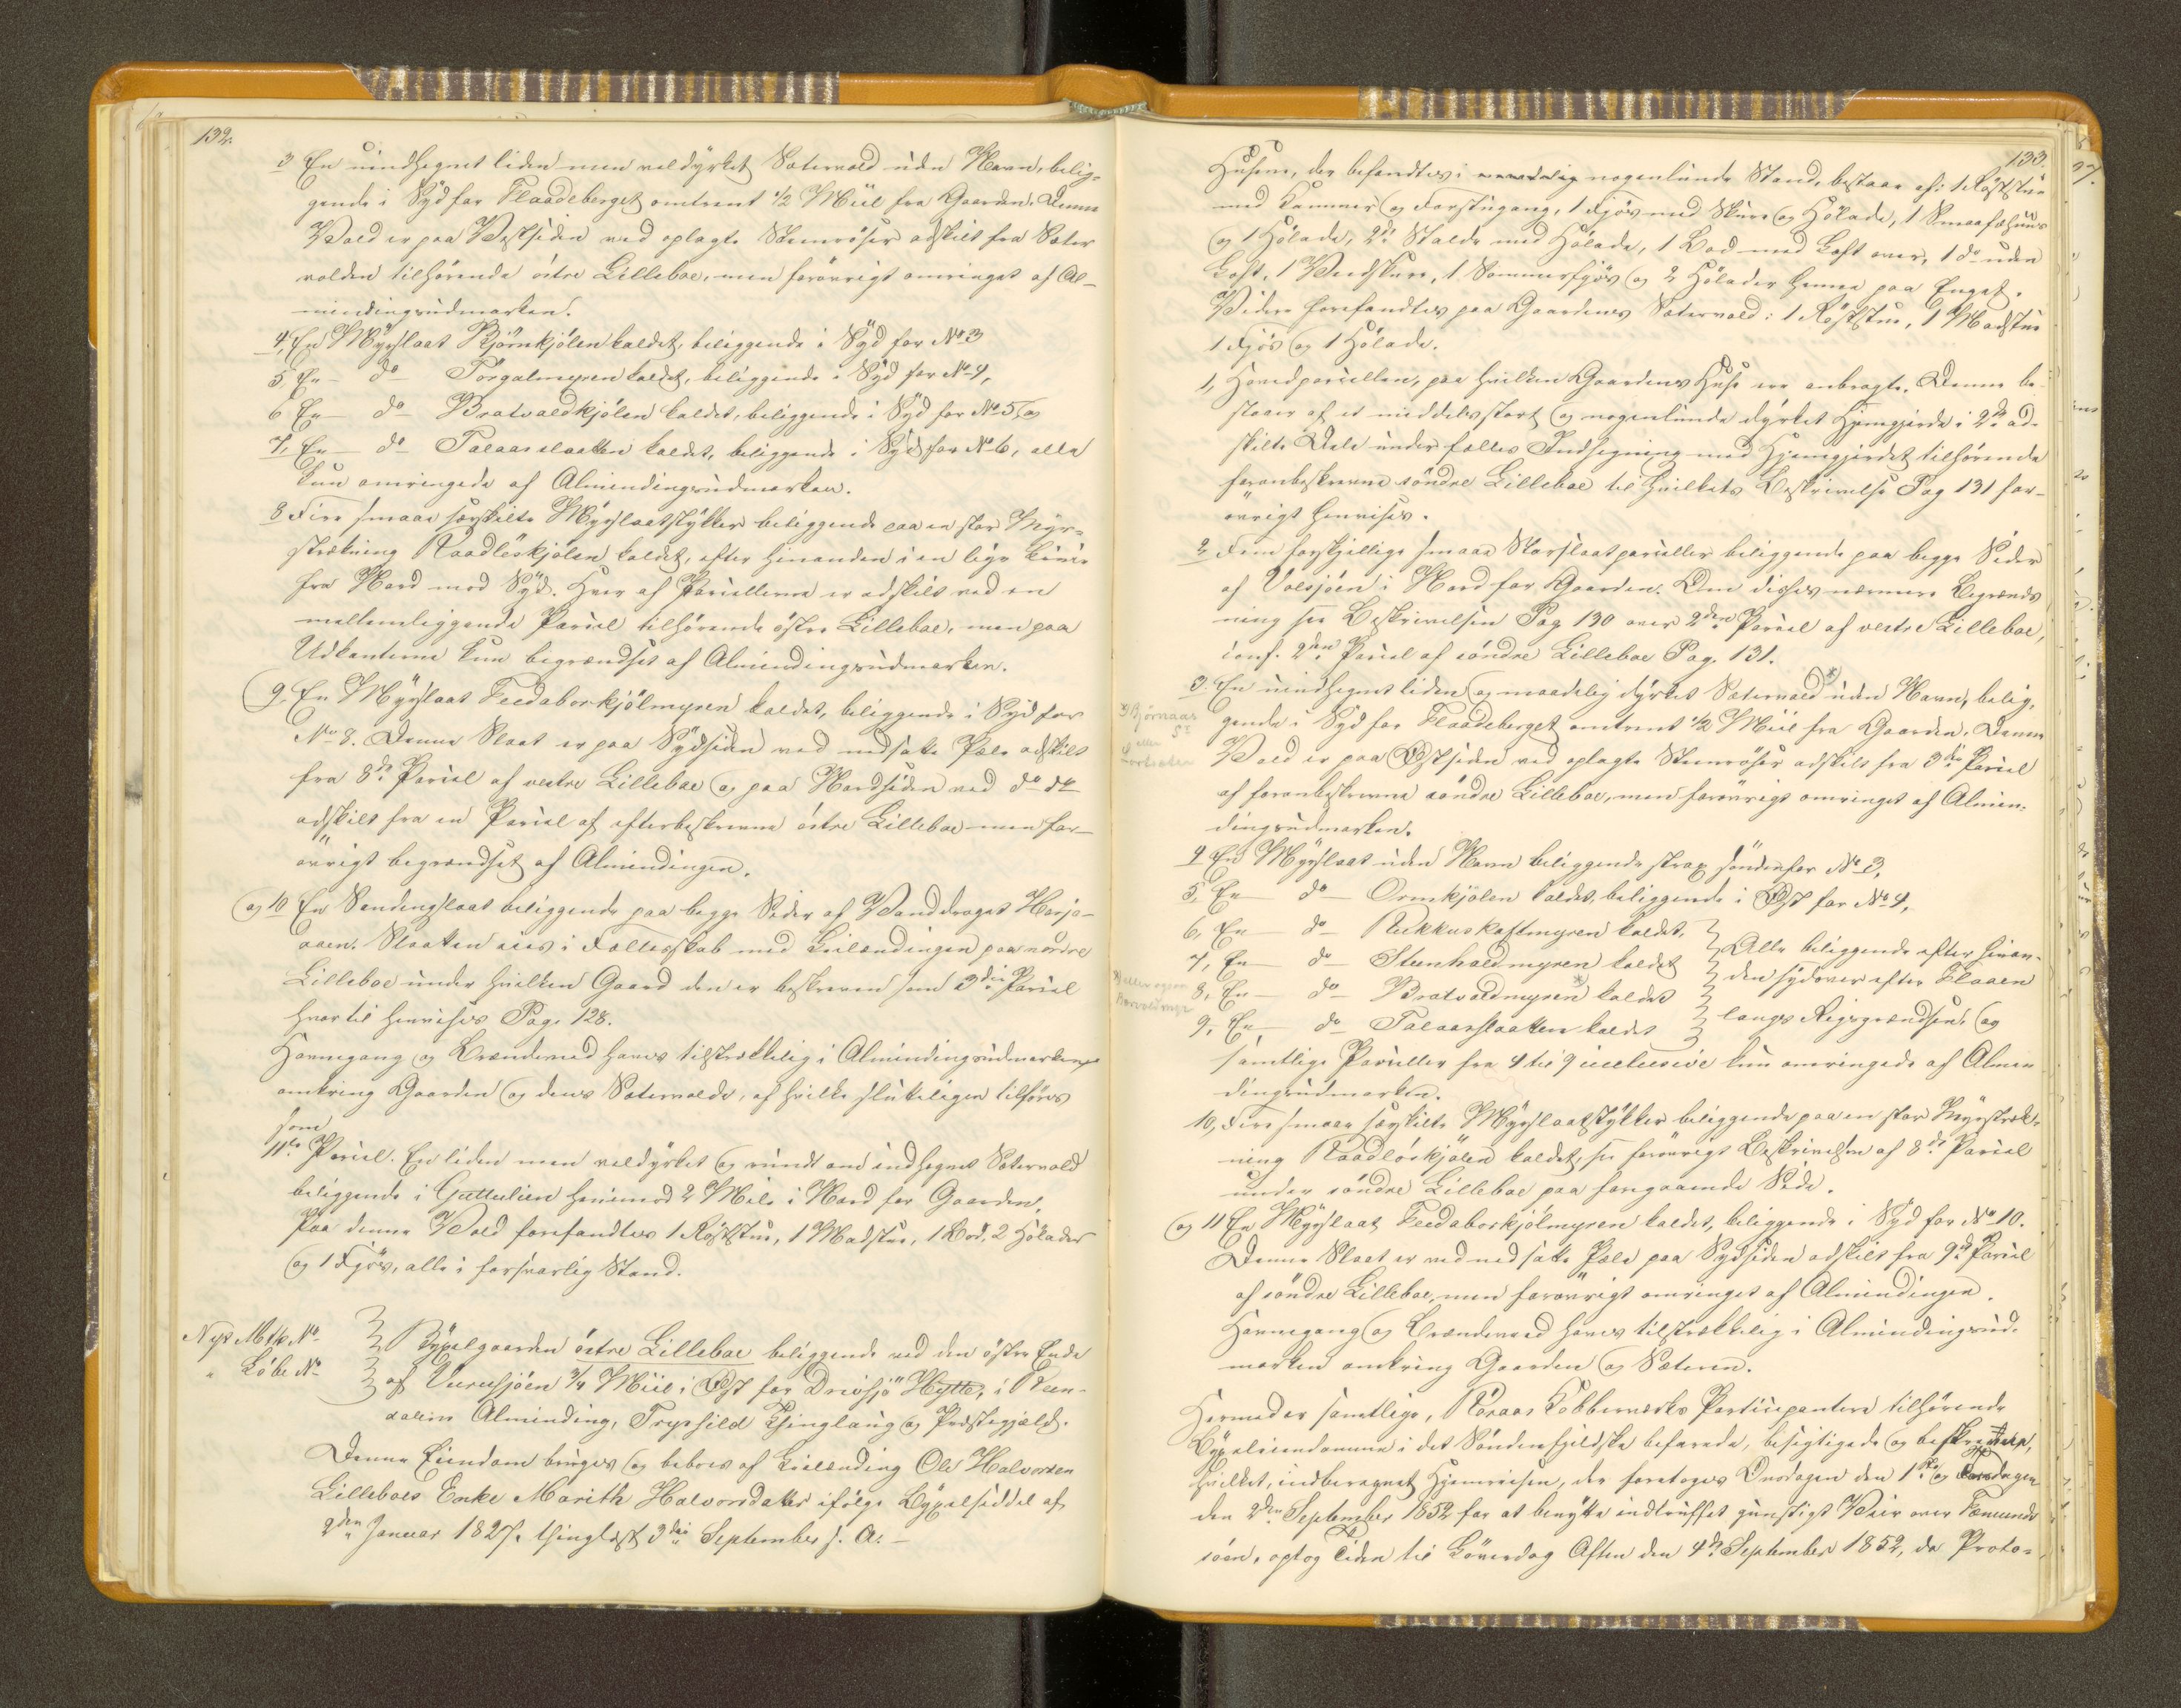 132.
3 En uindhegnet liden men veldyrket Sætervold uden Navn, belig-
gende i Syd for Flaadeberget omtrent 1/2 Miil fra Gaarden. Denne
Vold er paa Vestsiden ved oplagte Steenröser adskilt fra Sæter
volden tilhörende östre Lilleboe, men forövrigt omringet af Al-
mindingsudmarken.
4, En Myrslaat Björnkjölen kaldet, beliggende i Syd for No 3
5, En – do – Törgalmyren kaldet, beliggende i Syd for No 4,
6 En – do Bratvaldkjölen kaldet, beliggende i Syd for No 5, og
7, En – do – Palaasslaatten kaldet, beliggende i Syd for No 6, alle
kun omringede af Almindingsudmarken.
8 Fire smaae særskilte Myrslaatstykker beliggende paa en stor Myr-
strækning Raadlöskjölen kaldet, efter hinanden i en lige Linie
fra Nord mod Syd. Hver af Parcellerne er adskilt ved en
mellemliggende Parcel tilhörende östre Lilleboe, men paa
Udkanterne kun begrændset af Almindingsudmarken.
9, En Myrslaat Feedaborkjölmyren kaldet, beliggende i Syd for
No 8. Denne Slaat er paa Sydsiden ved nedsatte Pæle adskilt
fra 8de Parcel af vestre Lilleboe og paa Nordsiden ved do do
adskilt fra en Parcel af efterbeskrevne östre Lilleboe men for-
övrigt begrændset af Almindingen.
og 10 En Sendingslaat beliggende paa begge Sider af Vanddraget Horjo-
aaen. Slaatten eies i Fællesskab med Leilændingen paa nordre
Lilleboe under hvilken Gaard den er beskreven som 3die Parcel
hvortil henvises Pag. 128.
Havnegang og Brændeved haves tilstrækkelig i Almindingsudmarken
omkring Gaarden og dens Sætervolde, af hvilke sluteligen tilföres
som
11te Parcel. En liden men veldyrket og rundt om indhegnet Sætervold
beliggende i Guttulien henimod 2 Mile i Nord for Gaarden.
Paa denne Vold forefandtes 1 Röststue, 1 Madstue, 1 Bod, 2 Hölader
og 1 Fjös, alle i forsvarlig Stand.
Nyt Mtk No
" Löbe No
Bygselgaarden östre Lilleboe beliggende ved den östre Ende
af Vurrusjöen 3/4 Miil i Öst for Drevsjö Hytte, i Reen-
dalens Alminding, Trysild Thinglaug og Præstegjæld.
Denne Eiendom bruges og beboes af Leilænding Ole Halvorsen
Lilleboes Enke Marith Halvorsdatter ifölge Bygselseddel af
2den Januar 1827, thinglæst 3die September s. A. –
133.
Husene, der befandtes i nogenlunde Stand, bestaae af: 1 Röststue
med Kammer og Forstugang, 1 Fjös med Skure og Hölade, 1 Smaafæhuus
og 1 Hölade, 2de Stalde med Hölade, 1 Bod med Loft over, 1 do uden
Loft, 1 Vedskure, 1 Sommerfjös og 2 Hölader henne paa Enget.
Videre forefandtes paa Gaardens Sætervold: 1 Röststue, 1 Madstue
1 Fjös og 1 Hölade.
1, Hovedparcellen, paa hvilken Gaardens Huse ere anbragte. Denne be-
staaer af et middelsstort og nogenlunde dyrket Hjemgjerde i 2de ad-
skilte Dele under fælles Indhegning med Hjemgjerdet tilhörende
foranbeskrevne söndre Lilleboe til hvilkets Beskrivelse Pag 131 for-
övrigt henvises.
2 Fem forskjellige smaae Starslaatparceller beliggende paa begge Sider
af Volsjöen i Nord for Gaarden. Om disses nærmere Begrænds
ning see Beskrivelsen Pag 130 over 2den Parcel af vestre Lilleboe,
conf. 2den Parcel af söndre Lilleboe Pag. 131.
3. En uindhegnet liden og maadelig dyrket Sætervold* uden Navn, belig,
gende i Syd for Flaadeberget omtrent 1/2 Miil fra Gaarden. Denne
Vold er paa Östsiden ved oplagte Steenröser adskilt fra 3die Parcel
af foranbeskrevne söndre Lilleboe, men forövrigt omringet af Almin-
dingsudmarken.
Björnaas
eller
4 En Myrslaat uden Navn beliggende strax söndenfor No 3,
5, En – do – Ormkjölen kaldet, beliggende i Öst for No 4,
6, En – do Rukkuskaftmyren kaldet,
7, En – do – Steenhaldmyren kaldet
8, En – do – Bratvaldmyren* kaldet
9, En – do – Palaasslaatten kaldet
Alle beliggende efter hinan-
den sydover efter Elaaen
langs Rigsgrændsen, og
samtlige Parceller fra 4 til 9 inclusive kun omringede af Almen
dingsudmarken.
10, Fire smaae særskilte Myrslaatstykker beliggende paa en stor Myrstræk-
ning Raadlöskjölen kaldet, see forövrigt Beskrivelsen af 8de Parcel
under söndre Lilleboe paa foregaaende Side.
og 11 En Myrslaat Feedaborkjölmyren kaldet, beliggende i Syd for No 10.
Denne Slaat er ved nedsatte Pæle paa Sydsiden adskilt fra 9de Parcel
af söndre Lilleboe, men forövrigt omringet af Almindingen.
Havnegang og Brændeved haves tilstrækkelig i Almindingsud-
marken omkring Gaarden og Sæteren.
Hermed er samtlige, Röraas Kobberværks Participantere tilhörende
Bygseleiendomme i det Söndenfjeldske befarede, besigtigede og beskrevne,
hvilket, indberegnet Hjemreisen, der foretoges Onsdagen den 1ste og Torsdagen
den 2den September 1852 for at benytte indtruffet gunstigt Veir over Fæmund
söen, optog Tiden til Löverdag Aften den 4de September 1852, da Proto-